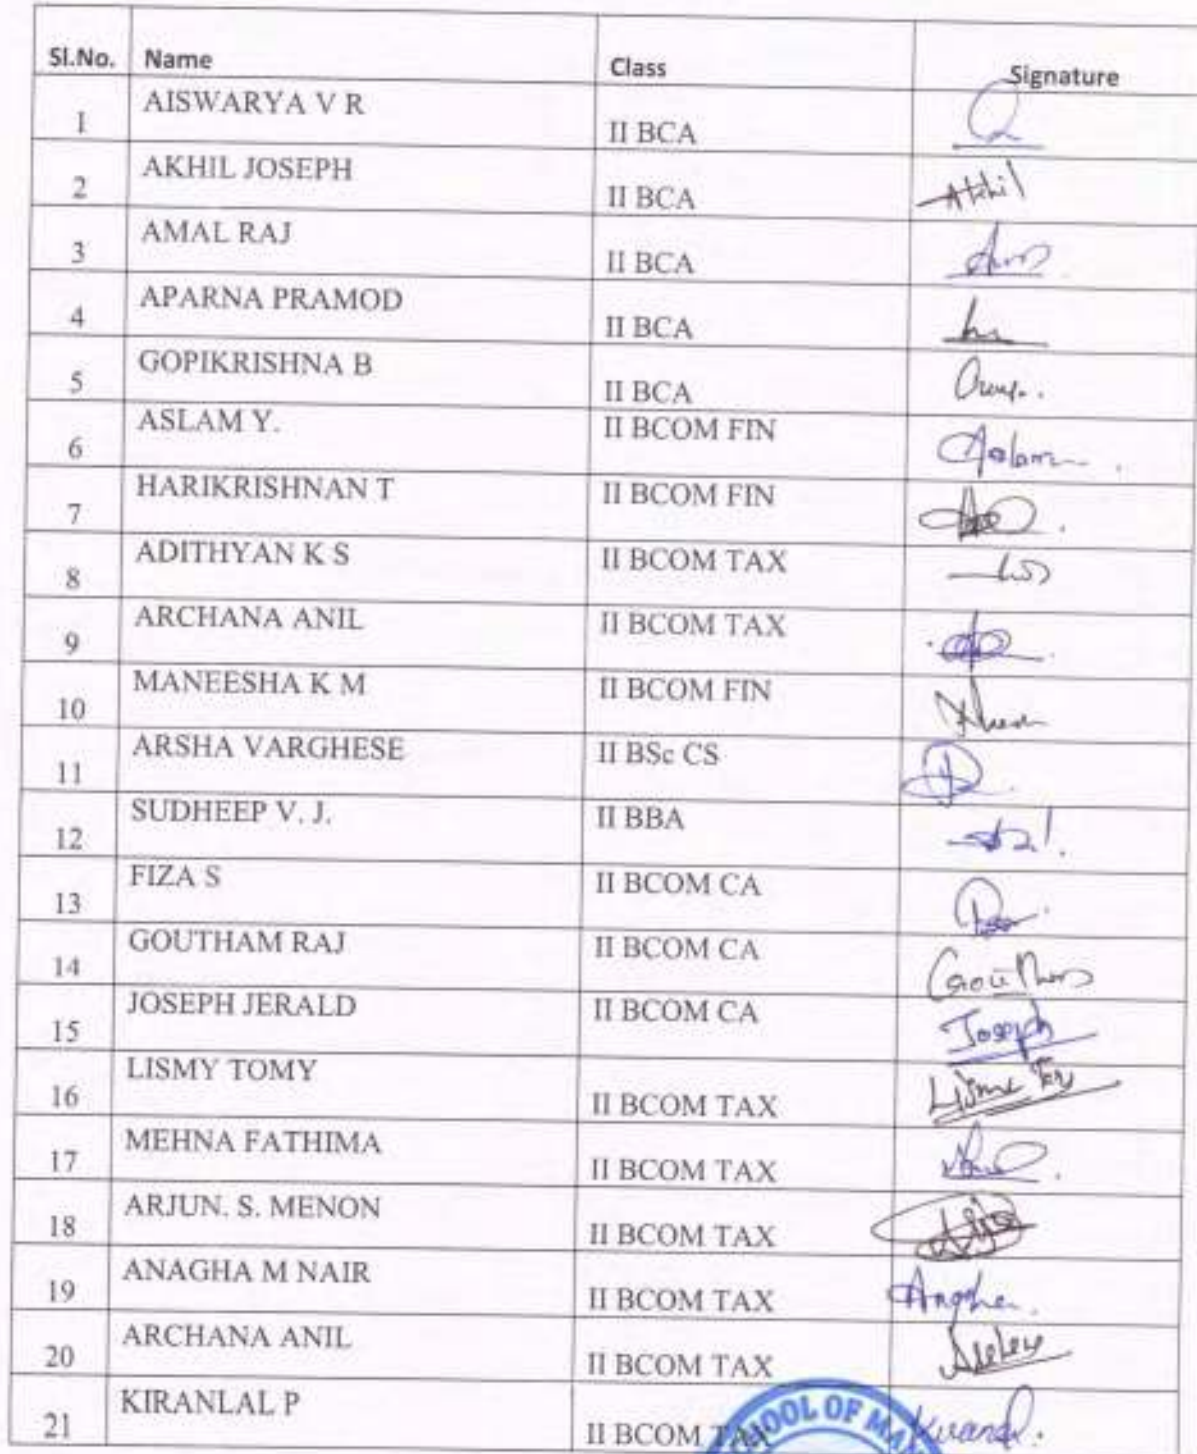 Sl.No. Name Class Signature
1 AISWARYA V R II BCA
2 AKHIL JOSEPH II BCA Akhil
3 AMAL RAJ II BCA
4 APARNA PRAMOD II BCA
5 GOPIKRISHNA B II BCA
6 ASLAM Y. II BCOM FIN Aslam
7 HARIKRISHNAN T II BCOM FIN
8 ADITHYAN K S II BCOM TAX
9 ARCHANA ANIL II BCOM TAX
10 MANEESHA K M II BCOM FIN
11 ARSHA VARGHESE II BSc CS
12 SUDHEEP V. J. II BBA
13 FIZA S II BCOM CA
14 GOUTHAM RAJ II BCOM CA
15 JOSEPH JERALD II BCOM CA Joseph
16 LISMY TOMY II BCOM TAX
17 MEHNA FATHIMA II BCOM TAX
18 ARJUN. S. MENON II BCOM TAX
19 ANAGHA M NAIR II BCOM TAX
20 ARCHANA ANIL II BCOM TAX
21 KIRANLAL P II BCOM TAX
OF